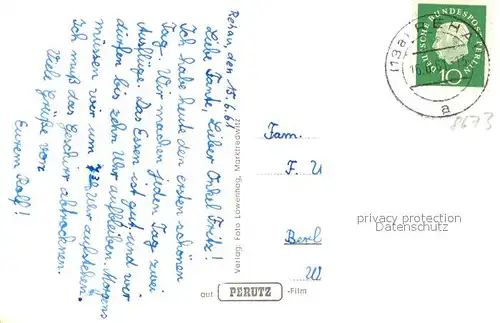 Rehau, den 15.6.61
Liebe Tante, Lieber Onkel Fritz!
Ich habe heute den ersten schönen
Tag. Wir machen jeden Tag zwei
Ausflüge. Das Essen ist gut und wir
dürfen bis zehn Uhr aufbleiben. Morgens
müssen wir um Uhr aufstehen.
Ich muß das Geschirr abtrocknen.
Viele Grüße von
Eurem Rolf!
Verlag: Foto Löwenhag, Marktredwitz
auf PERUTZ -Film
Fam.
F. U
Berl
W
(13a) REHAU
16.
a
DEUTSCHE BUNDESPOST BERLIN
10
8673
privacy protection
Datenschutz